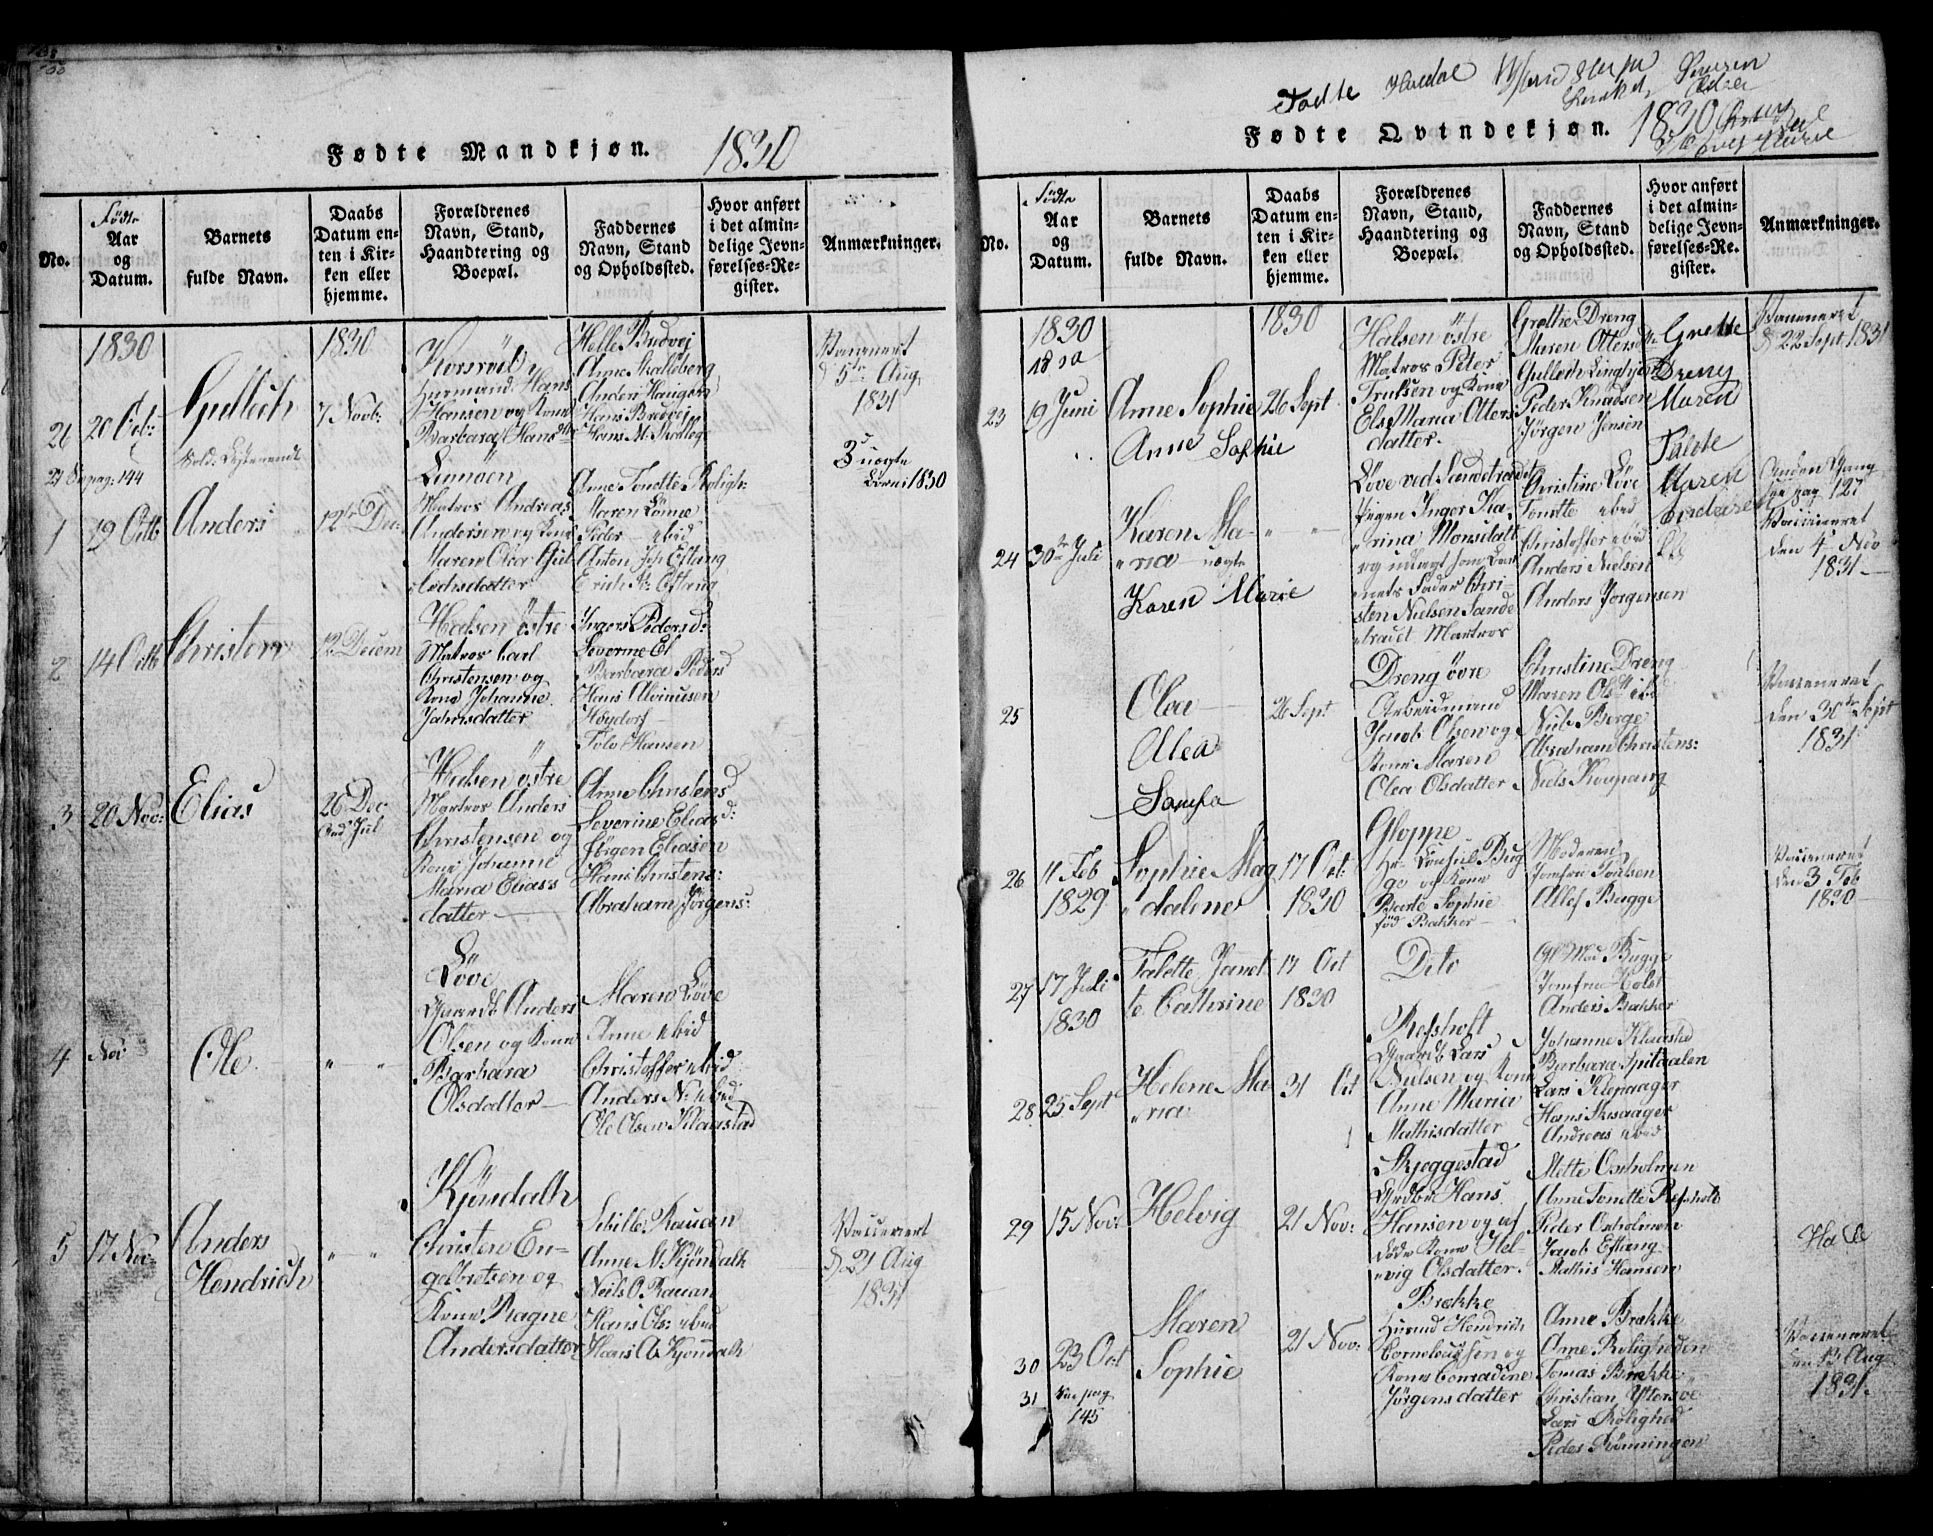 Fødte Mandkjøn. 1830
No.
Fødte
Aar
og
Datum.
Barnets
fulde Navn.
Daabs
Datum en-
ten i Kir-
ken eller
hjemme.
Forældrenes
Navn, Stand,
Haandtering og
Boepæl.
Faddernes
Navn, Stand
og Opholdssted.
Hvor anført
i det almin-
delige Jevn-
førelses-Re-
gister.
Anmærkninger.
1830
1830
26
20 Oct:
Gullich
7 Novb:
Huusmand Hans
Hansen og Kone
Barbara Hansdtr
Helle Bredvej
Anne Skalleberg
Anders Haugen
Hans Bredvej
Hans M. Skalleb
Vaccineret
d 5te Aug
1831
27 pag: 144
3 uægte
Børn i 1830
1
19 Octb
Anders
12 Dec:
Matros Andreas
Andersen og Kone
Maren Olea Gul
lichsdatter
Anne Tonette Roligh:
Maren Lønne
Peder ibid
Anton Joh Eftang
Erich N: Eftang
2
14 Octb
Christen
12 Decem
Halsen østre
Matros Carl
Christensen og
Kone Johanne
Jahnsdatter
Inger Pedersd:
Severine El
Barbara Peders
Hans Abrausen
Høydorf
Tolv Hansen
3
20 Nov:
Elias
26 Dec
And. Jul
Halsen østre
Matros Anders
Christensen og
Kone Johanne
Maria Elias
datter
Anne Christens
Severine Eliasd:
Jørgen Eliasen
Hans Christens:
Abraham Jørgens:
4
Nov
Ole
" "
Løve
Gaardb Anders
Olsen og Kone
Barbara
Olsdatter
Maren Løve
Anne ibid
Christoffer ibid
Anders N: ibid
Ole Olsen Klaastad
5
17 Nov:
Anders
Hendrich
" "
Kjøndahl
Christen En-
gelbretsen og
Kone Ragne
Andersdatter
Sibille Rauan
Anne M. Kjøndahl
Neils O. Rauan
Hans Ols: ibid
Hans A Kjøndahl
Vaccineret
d 21 Aug
1831
Fødte Qvindekjøn. 1830
No.
Fødte
Aar
og
Datum.
Barnets
fulde Navn.
Daabs
Datum en-
ten i Kir-
ken eller
hjemme.
Forældrenes
Navn, Stand,
Haandtering og
Boepæl.
Faddernes
Navn, Stand
og Opholdssted.
Hvor anført
i det almin-
delige Jevn-
førelses-Re-
gister.
Anmærkninger.
1830
1830
23
19 Juni
Anne Sophie
Anne Sophie
26 Sept
Halsen østre
Matros Peter
Trulsen og Kone
Else Maria Otters
datter.
Grethe Dreng
Maren Ottersd
Gullich Linghjem
Peder Knudsen
Jørgen Jensen
Grette
Dreng
Maren
Vaccineret
d 22 Sept 1831
24
30te Juli
Karen Ma-
"ria uægte
Karen Marie
" "
Løve ved Sandetraadet
Pigen Inger Ka-
"rina Monsdatt
og udlagt som Bar
nets Fader Chri-
sten Nielsen Sande
traadt Matros
Christine Løve
Tonette ibid
Christoffer ibid
Anders Nielsen
Anders Jørgensen
Maren
Anden Gang
see pag 127
Vaccineret
den 4 Nov
1831
25
Olea
Alea
26 Sept
Dreng øvre
Arbeidmand
Jacob Olsen og
Kone Maren
Olea Olsdatter
Christine Dreng
Maren Olsd ibid
Niels Berge
Abraham Christens:
Niels Kaupang
Vaccineret
den 30te Sept
1831
26
11 Feb
1829
Sophie Mag
"dalene
17 Oct:
1830
Gloppe
Hr. Consul Bug
ge og Kone
Barte Sophie
fød Bakker
Moderen
Jomfru Poulsen
Allef Bugge
Vaccineret
den 3 Feb
1830
27
17 Juli
1830
Talette Janet
te Cathrine
17 Oct
1830
Dito
Gl Mad Bugge
Jomfru Holst
Anders Bakker
28
25 Sept
Helene Ma
"ria
31 Oct
Refsholt
Gaardb Lars
Nielsen og Kone
Anne Maria
Mathisdatter
Johanne Klaastad
Barbara Spitaalen
Lars Klepaager
Hans Skisaager
Andreas ibid
29
15 Nov:
Helvig
21 Nov:
Skjeggestad
Grdbr Hans
Hansen og af
døde Kone Hel-
vig Olsdatter.
Mette Oxeholmen
Anne Tonette Refsholt
Peder Oxeholmen
Jacob Eftang
Mathis Hansen
30
23 Oct
Maren
Sophie
21 Nov:
Brekke
Huusmd Hendrich
Corneleussen og
Kone Conradine
Jørgensdatter
Anne Brekke
Anne Roligheden
Tomas Brekke
Christian Ytersøe
Lars Rolighed
Peder Rønningen
Vaccineret
den 13 Aug
1831.
31
See pag
145